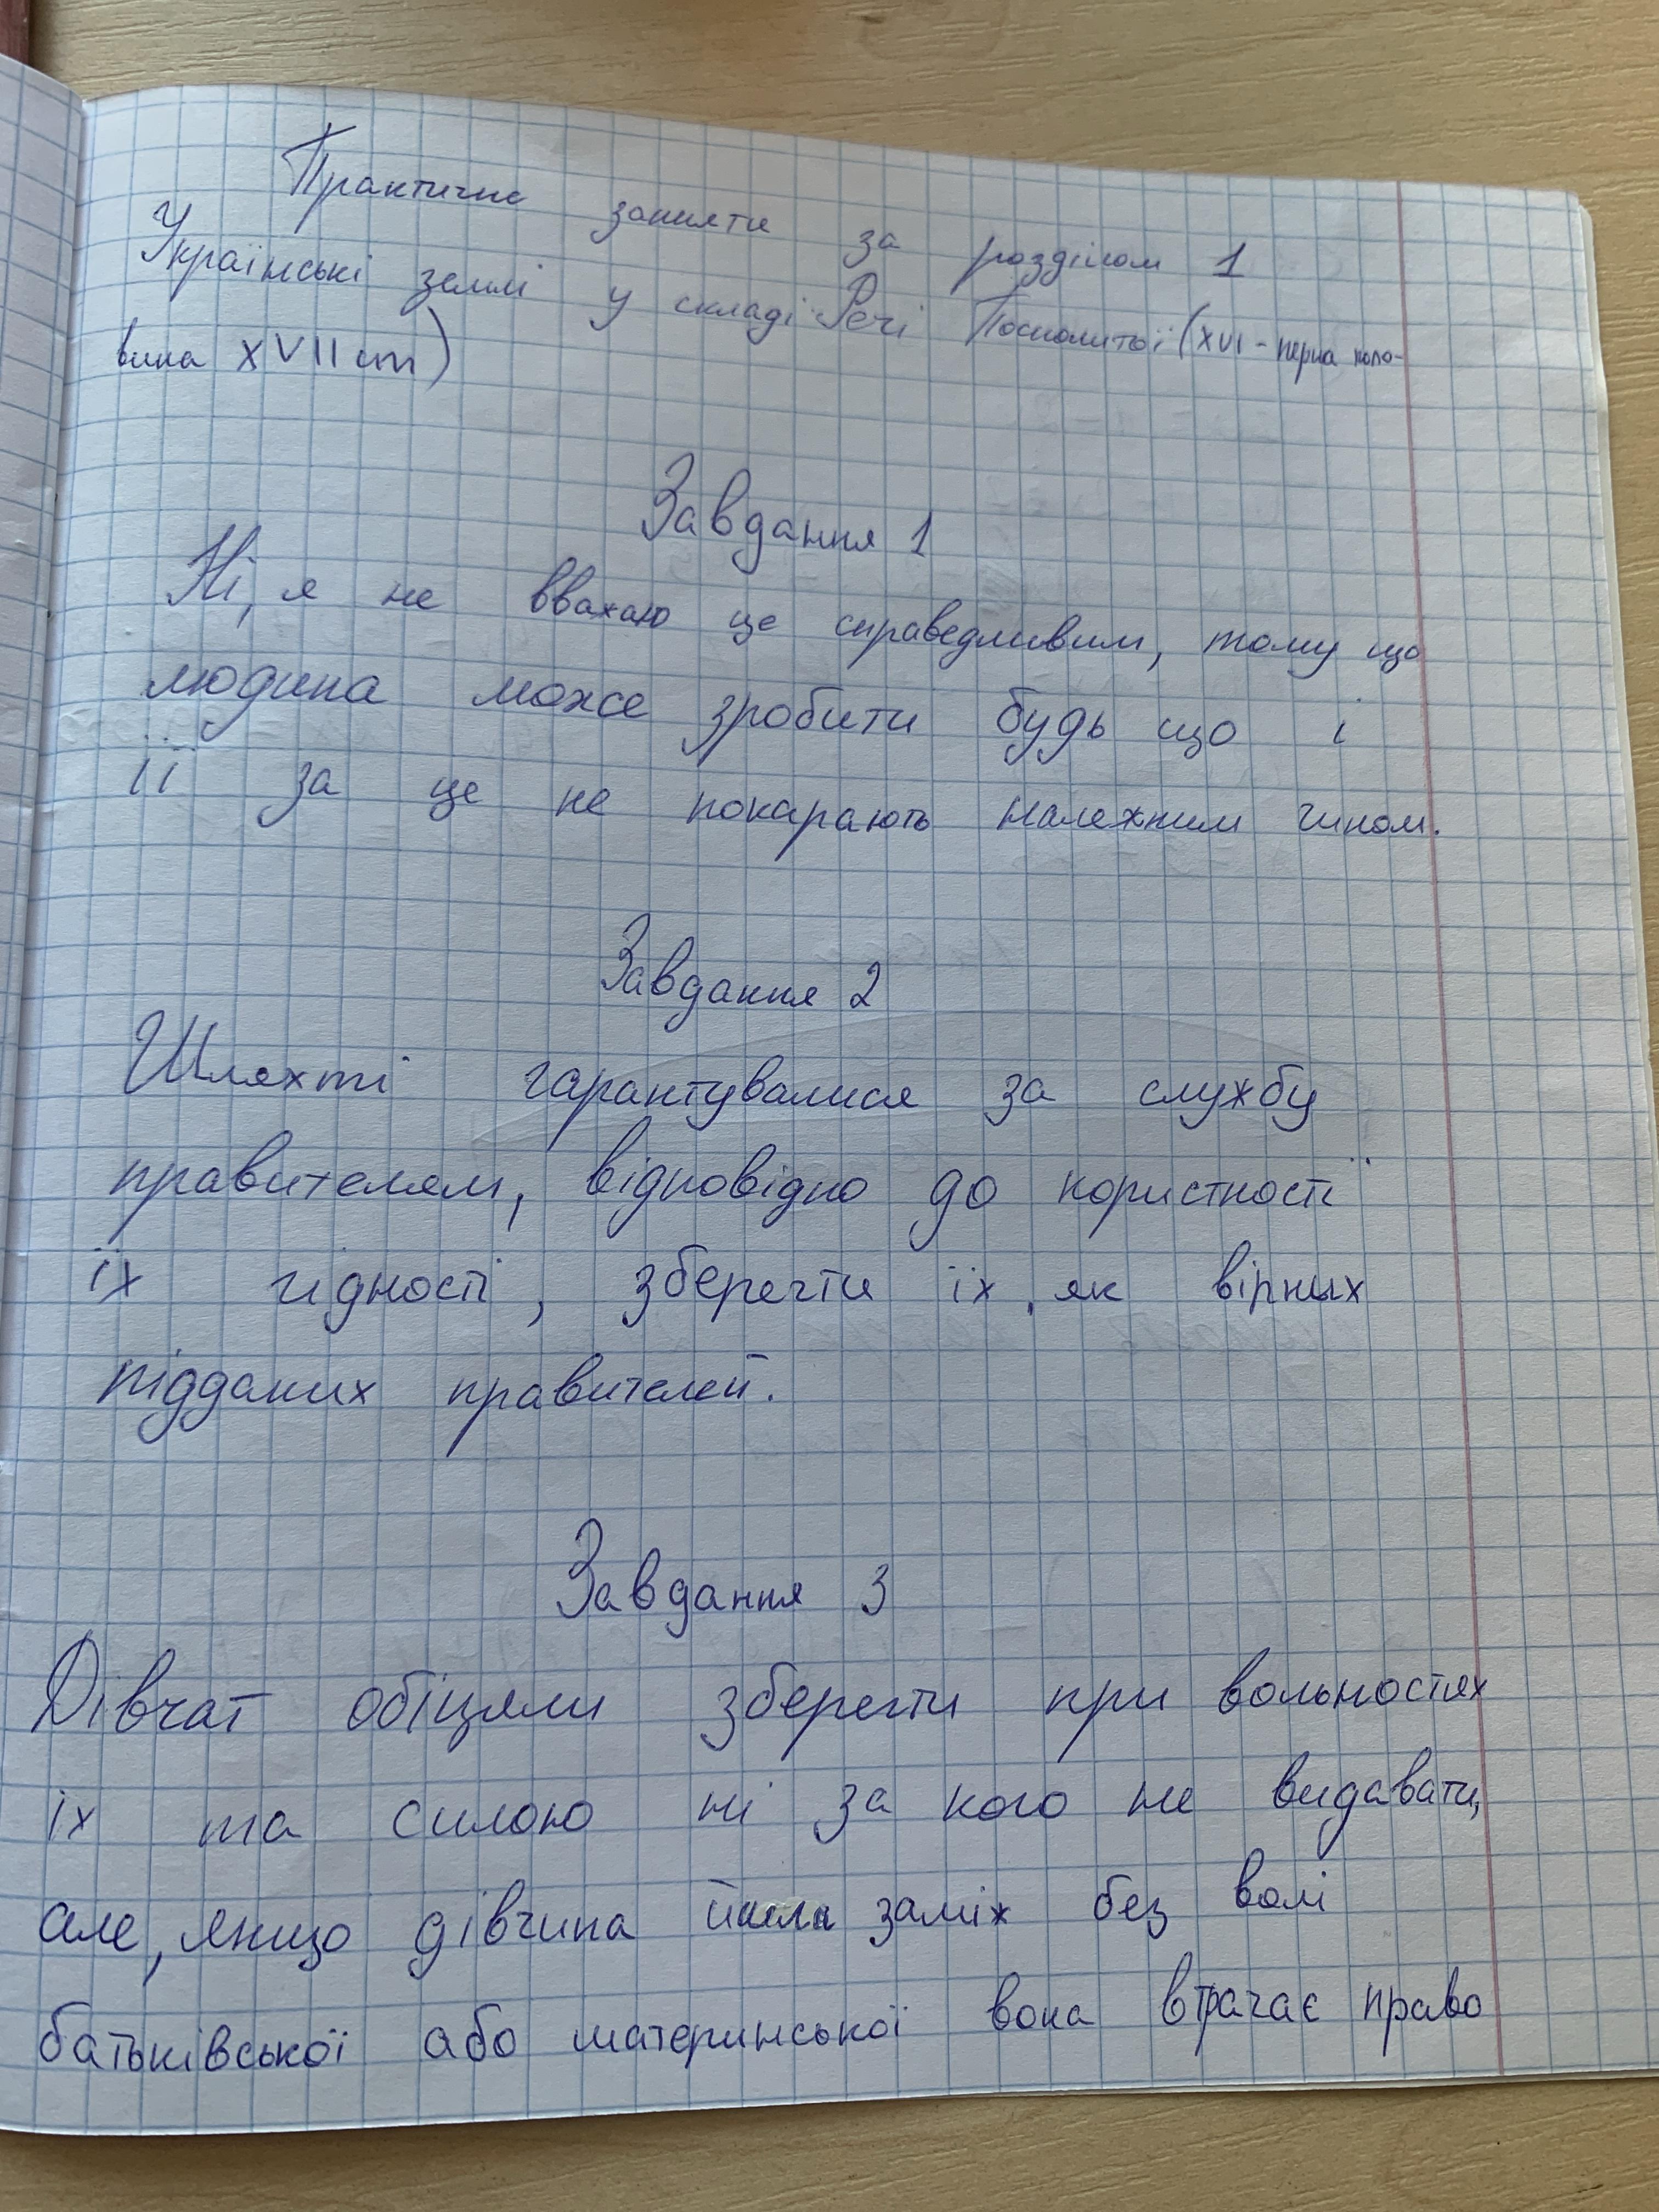 Практичне заняти за розділом 1
Українські землі у складі Речі Посполитої (XVI - перша поло-
вина XVII ст)
Завдання 1
Ні, я не вважаю це справедливим, тому що
людина може зробити будь що і
її за це не покарають належним чином.
Завдання 2
Шляхті гарантувалися за службу
правителям, відповідно до користності
їх гідності, зберегти їх, як вірних
підданих правителей.
Завдання 3
Дівчат обіцяли зберегти при вольностях
їх та силою ні за кого не видавати,
але, якщо дівчина йшла заміж без волі
батьківської або материнської вона втрачає право